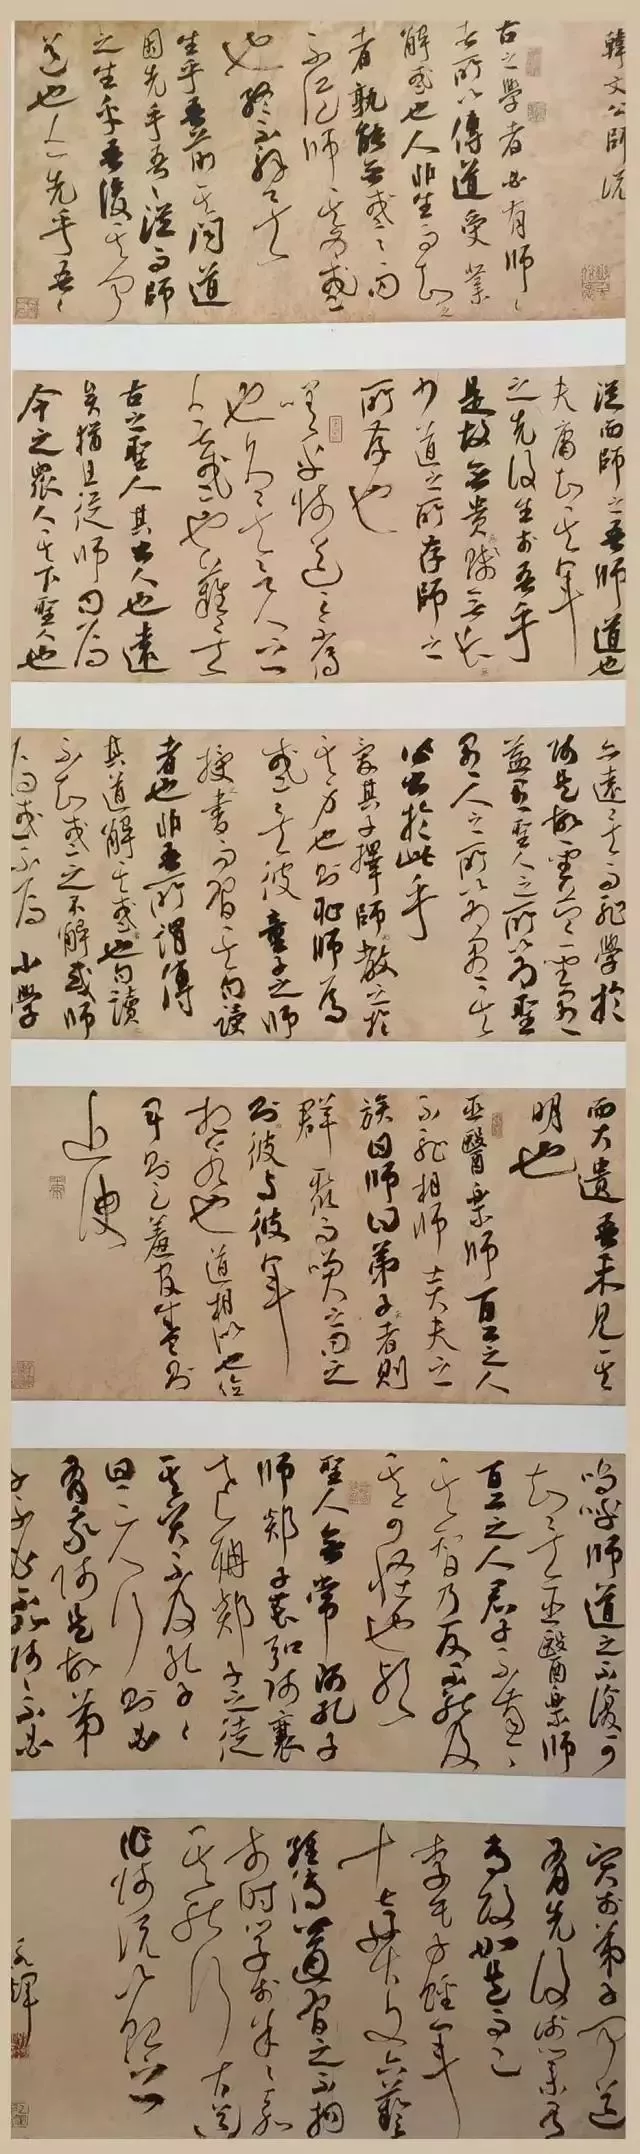 韓文公師說
古之學者必有師〻
者所以傳道受業
解惑也人非生而知之
者孰能無惑〻而
不從師其為惑
也終不解矣
生乎吾前其聞道
固先乎吾〻從而師
之生乎吾後其聞
道也亦先乎吾〻
從而師之吾師道也
夫庸知其年
之先後生於吾乎
是故無貴賤無長
少道之所存師之
所存也
嗟乎師道之不傳
也久矣欲人之
無惑也難矣
古之聖人其出人也遠
矣猶且從師而問焉
今之眾人其下聖人也
亦遠矣而恥學於
師是故聖益聖愚
益愚聖人之所以為聖
愚人之所以為愚其
皆出於此乎
愛其子擇師教之於
其身也則恥師焉
惑矣彼童子之師
授書而習其句讀
者也非吾所謂傳
其道解其惑也句讀
不知惑之不解或師
焉或不焉小學
而大遺吾未見其
明也
巫醫樂師百工之人
不恥相師士大夫之
族曰師曰弟子者則
群聚而笑之問之
則彼與彼年
相若也道相似也位
卑則足羞官盛則
近諛
嗚呼師道之不復可
知矣巫醫樂師
百工之人君子不齒〻
其智乃反不能及
其可怪也歟
聖人無常師孔子
師郯子萇弘師襄
老聃郯子之徒
其賢不及孔子〻
曰三人行則必
有我師是故弟
子不必不如師〻不必
賢於弟子聞道
有先後術業有
專攻如是而已
李氏子蟠年
十七好古文六藝
經傳皆通習之不拘
於時學於余〻嘉
其能行古道
作師說以貽之